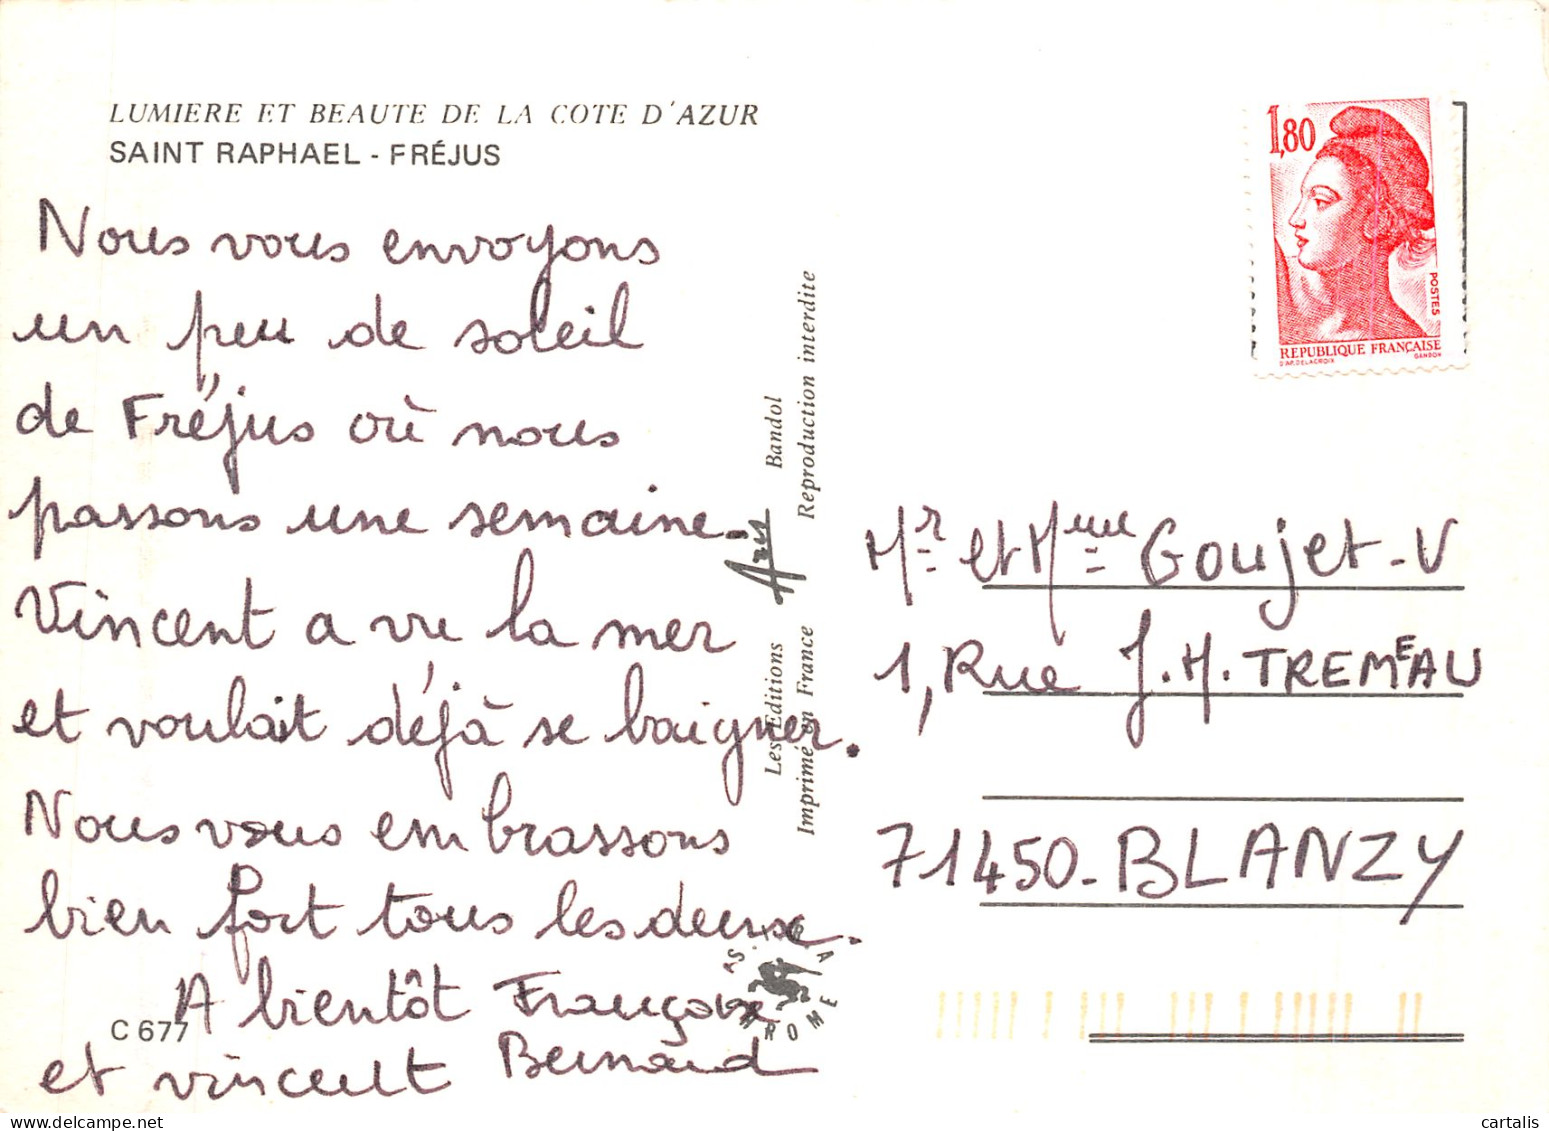 LUMIERE ET BEAUTE DE LA COTE D'AZUR
SAINT RAPHAEL - FRÉJUS
Nous vous envoyons
un peu de soleil
de Fréjus où nous
passons une semaine.
Vincent a vu la mer
et voulait déjà se baigner.
Nous vous embrassons
bien fort tous les deux.
A bientôt Françoise
et vincent Bernard
C 677
Les Editions Aris Bandol
Imprimé en France Reproduction interdite
1,80
POSTES
REPUBLIQUE FRANÇAISE
D'AP. DELACROIX GANDON
Mr et Mme Goujet-V
1, Rue J.M. TREMEAU
71450-BLANZY
cartalis